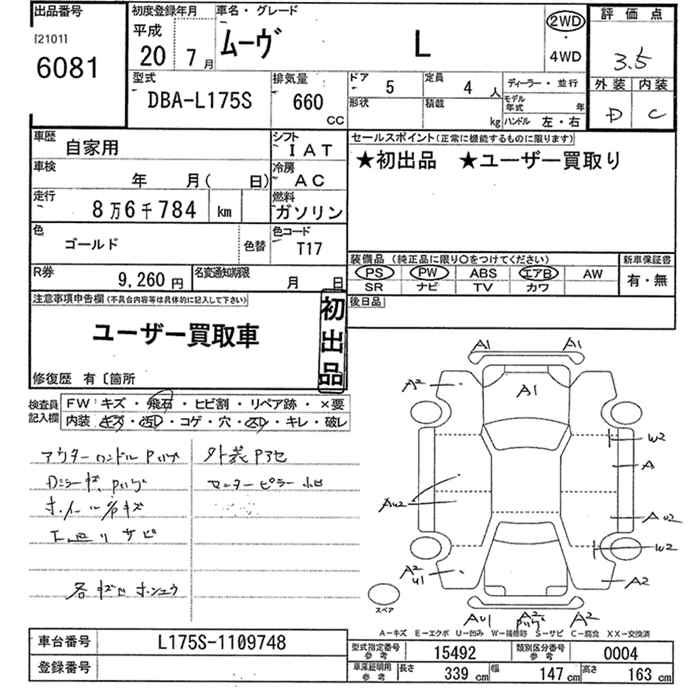 出品番号
[2101]
6081
初度登録年月
平成
20 年 7 月
車名・グレード
ムーヴ L
2WD
・
4WD
評価点
3.5
外装 内装
D C
型式
DBA-L175S
排気量
660
CC
ドア
5
形状
定員
4 人
積載
kg
ディーラー・並行
モデル
年式 年
ハンドル 左・右
車歴
自家用
シフト
IAT
車検
年 月( 日)
冷房
AC
走行
8万6千784 km
燃料
ガソリン
色
ゴールド
色替
色コード
T17
R券
9,260円
名変通知期限
月 日
セールスポイント(正常に機能するものに限ります)
★初出品 ★ユーザー買取り
装備品 (純正品に限り○をつけてください)
PS PW ABS エアB AW
SR ナビ TV カワ
新車保証書
有・無
後日品
注意事項申告欄(不具合内容等は具体的に記入して下さい)
ユーザー買取車
初出品
修復歴 有〔箇所
検査員
記入欄
FW:キズ・飛石・ヒビ割・リペア跡・×要
内装・キズ・汚れ・コゲ・穴・・キレ・破レ
外装
センターピラー
ホイールキズ
サビ
A1 A1
A2
A1
W2
A
AU2
AU2
W2
A2
U1
A2
AU1
A2
A2
スペア
A-キズ E-エクボ U-凹み W-補修跡 S-サビ C-腐食 XX-交換済
車台番号
L175S-1109748
登録番号
型式指定番号
参考
15492
類別区分番号
参考
0004
車庫証明用
参考
長さ
339 cm
幅
147 cm
高さ
163 cm